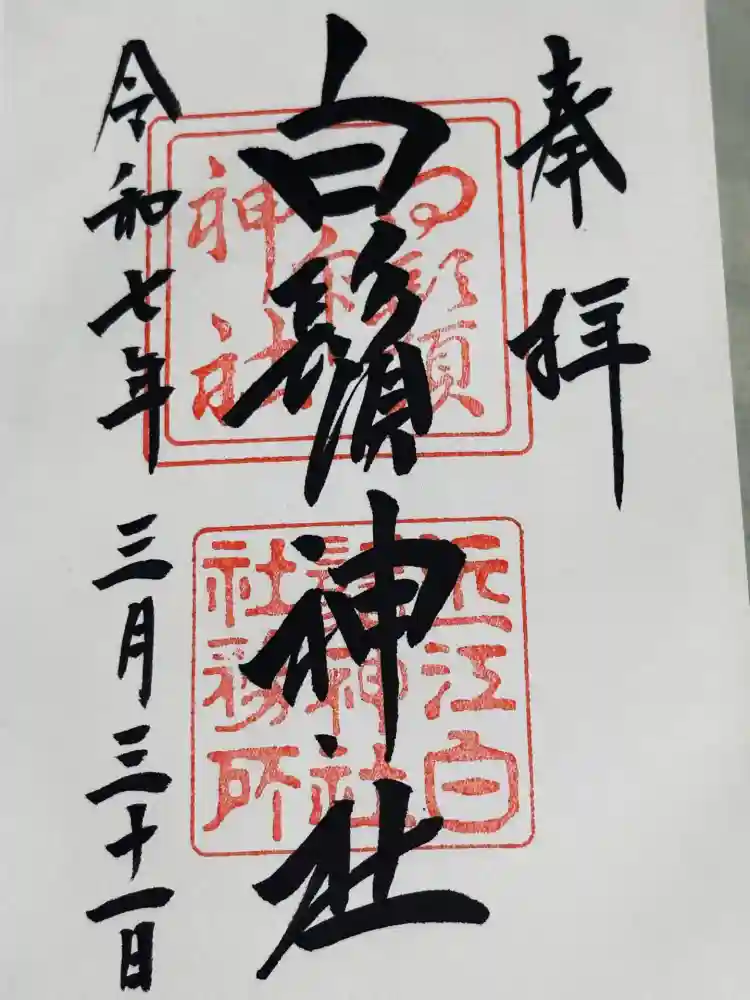 奉拝
白鬚神社
令和七年三月三十一日
近江白
鬚神社
社務所